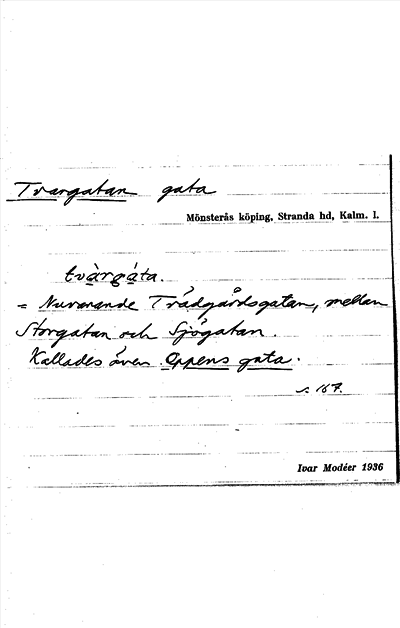 Tvärgatan gata
Mönsterås köping, Stranda hd, Kalm. l.
tvä̀rgá̀ta.
= Nuvarande Trädgårdsgatan, mellan
Storgatan och Sjögatan.
Kallades även Eppens gata.
s. 167.
Ivar Modéer 1936